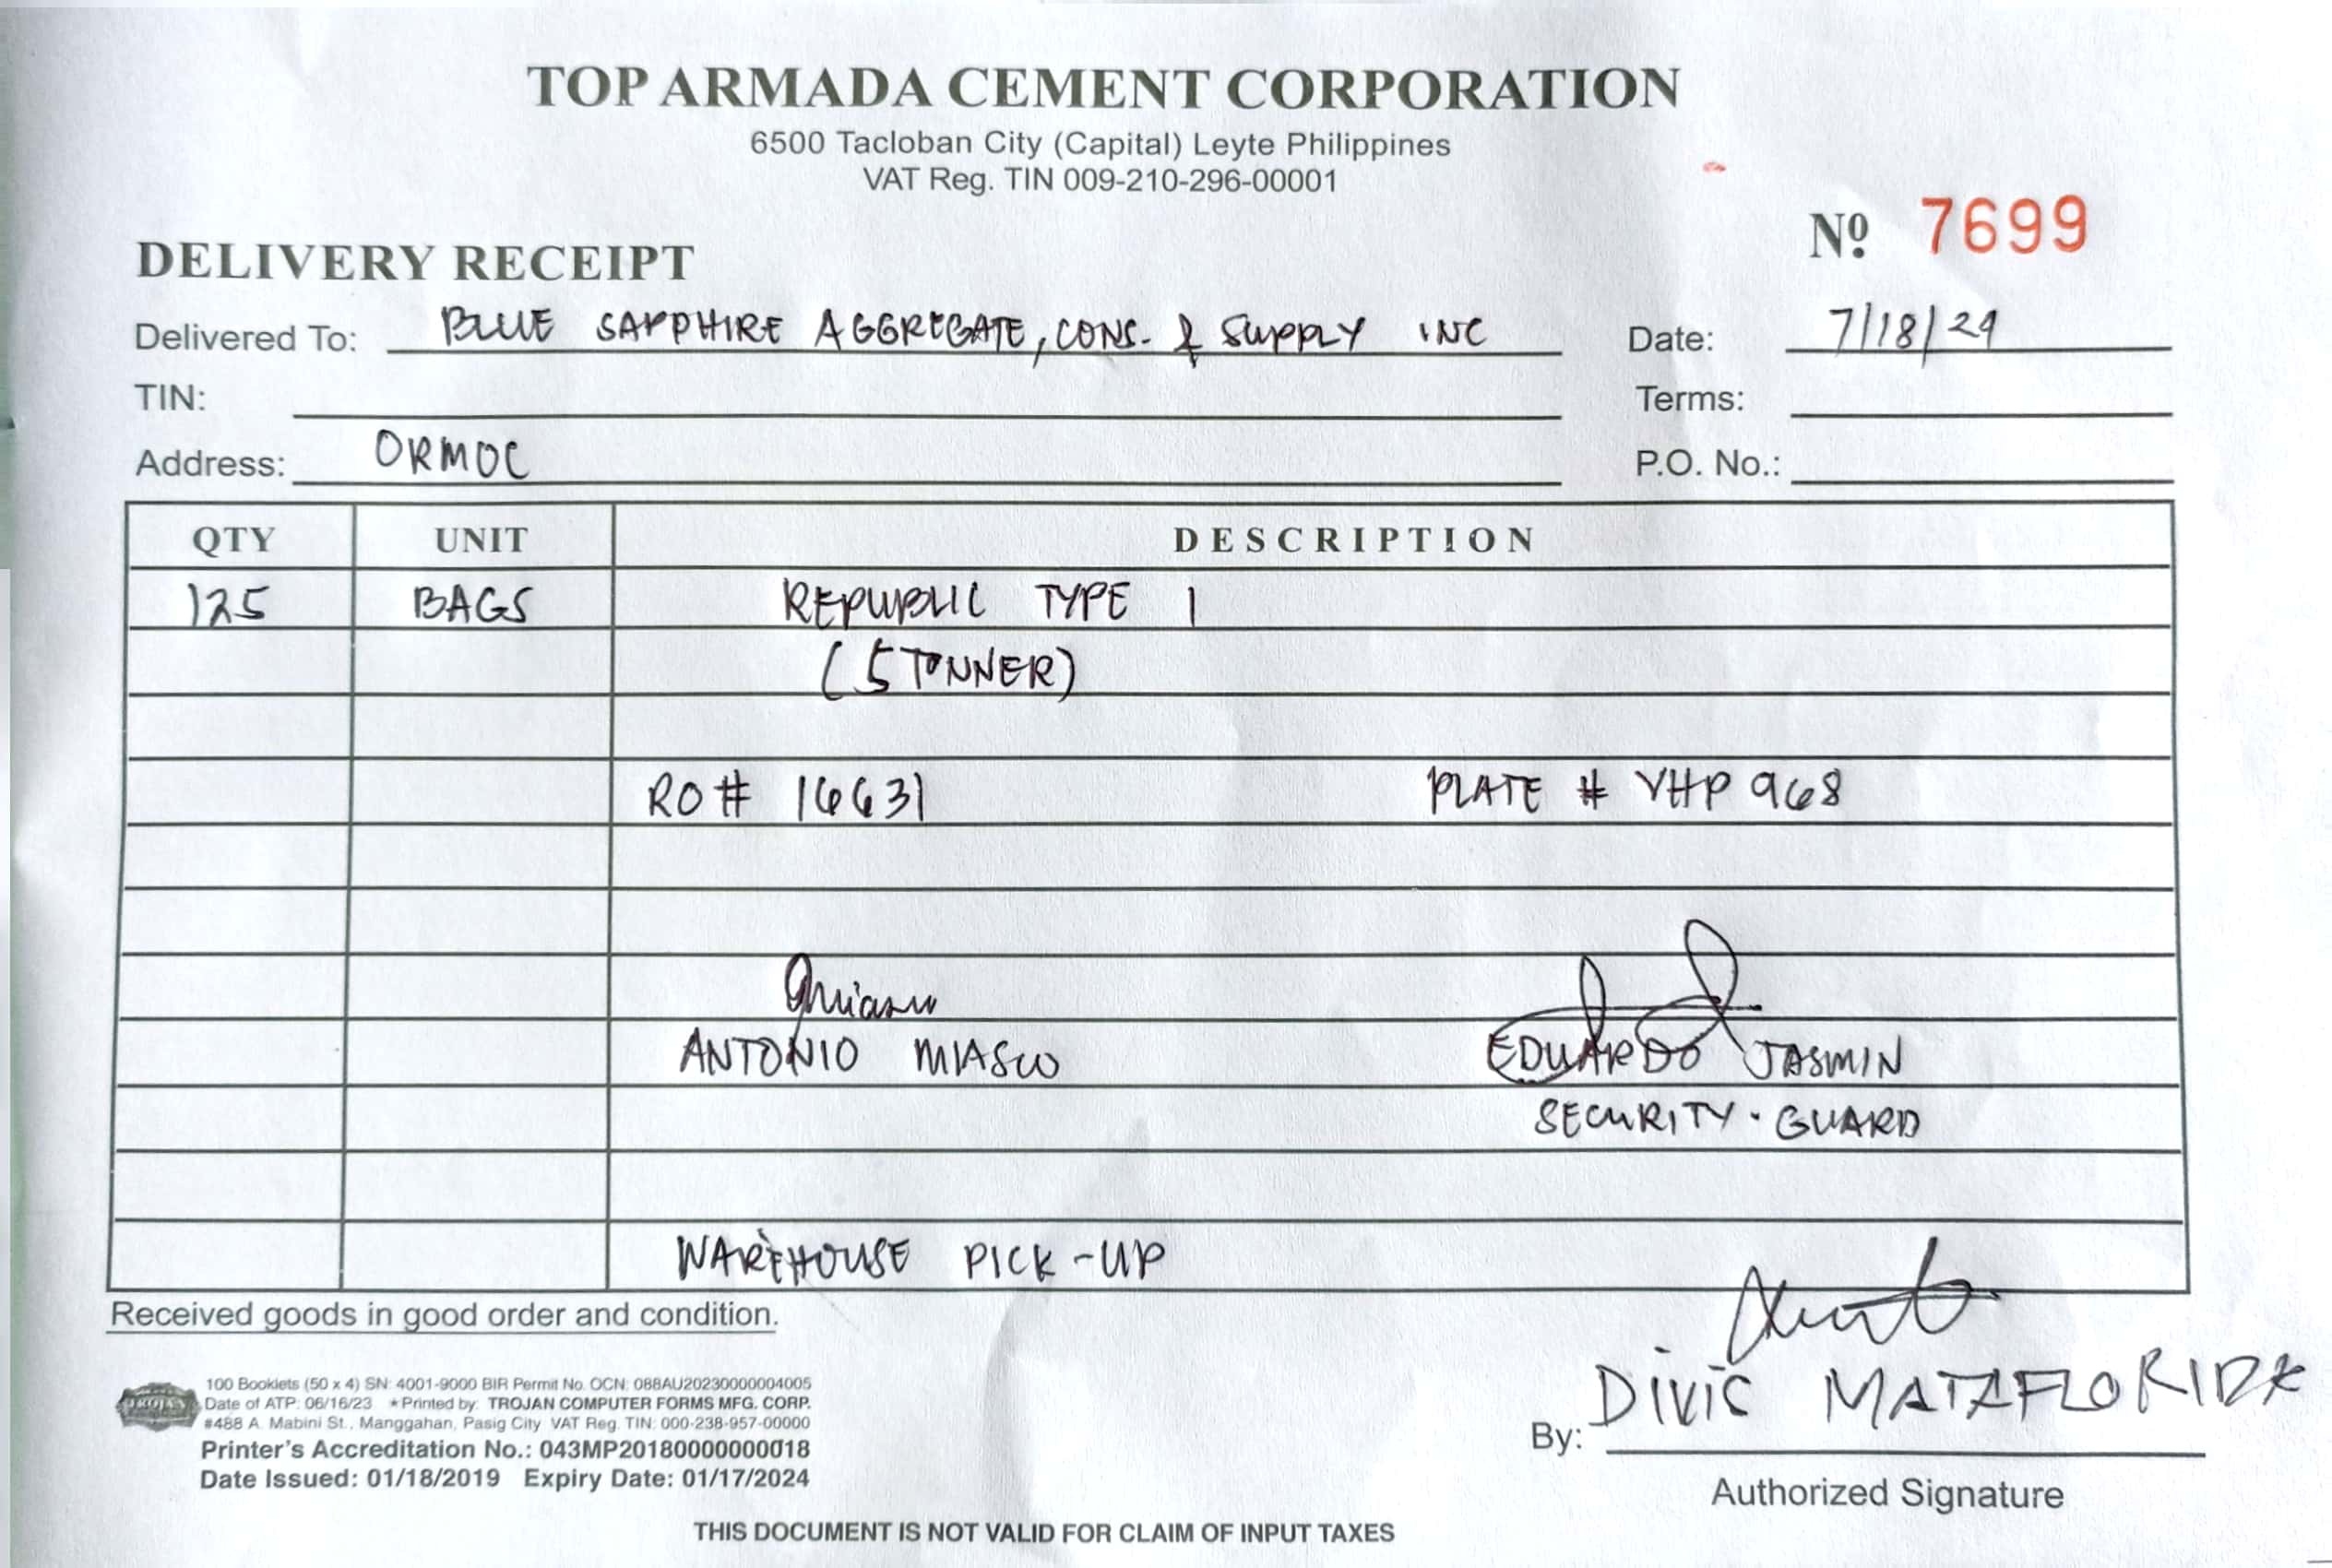 TOP ARMADA CEMENT CORPORATION
6500 Tacloban City (Capital) Leyte Philippines
VAT Reg. TIN 009-210-296-00001
Nº 7699
DELIVERY RECEIPT
Delivered To: BLUE SAPPHIRE AGGREGATE, CONS. & SUPPLY INC
Date: 7/18/24
TIN:
Terms:
Address: ORMOC
P.O. No.:
QTY UNIT DESCRIPTION
125 BAGS REPUBLIC TYPE 1
(5 TONNER)
RO# 16631 PLATE # VHP 968
ANTONIO MIASCO EDUARDO JASMIN
SECURITY GUARD
WAREHOUSE PICK-UP
Received goods in good order and condition.
100 Booklets (50 x 4) SN: 4001-9000 BIR Permit No. OCN: 088AU20230000004005
Date of ATP: 06/16/23 *Printed by: TROJAN COMPUTER FORMS MFG. CORP.
#488 A. Mabini St., Manggahan, Pasig City VAT Reg. TIN: 000-238-957-00000
Printer's Accreditation No.: 043MP20180000000018
Date Issued: 01/18/2019 Expiry Date: 01/17/2024
By: DIVIS MATAFLORIDA
Authorized Signature
THIS DOCUMENT IS NOT VALID FOR CLAIM OF INPUT TAXES